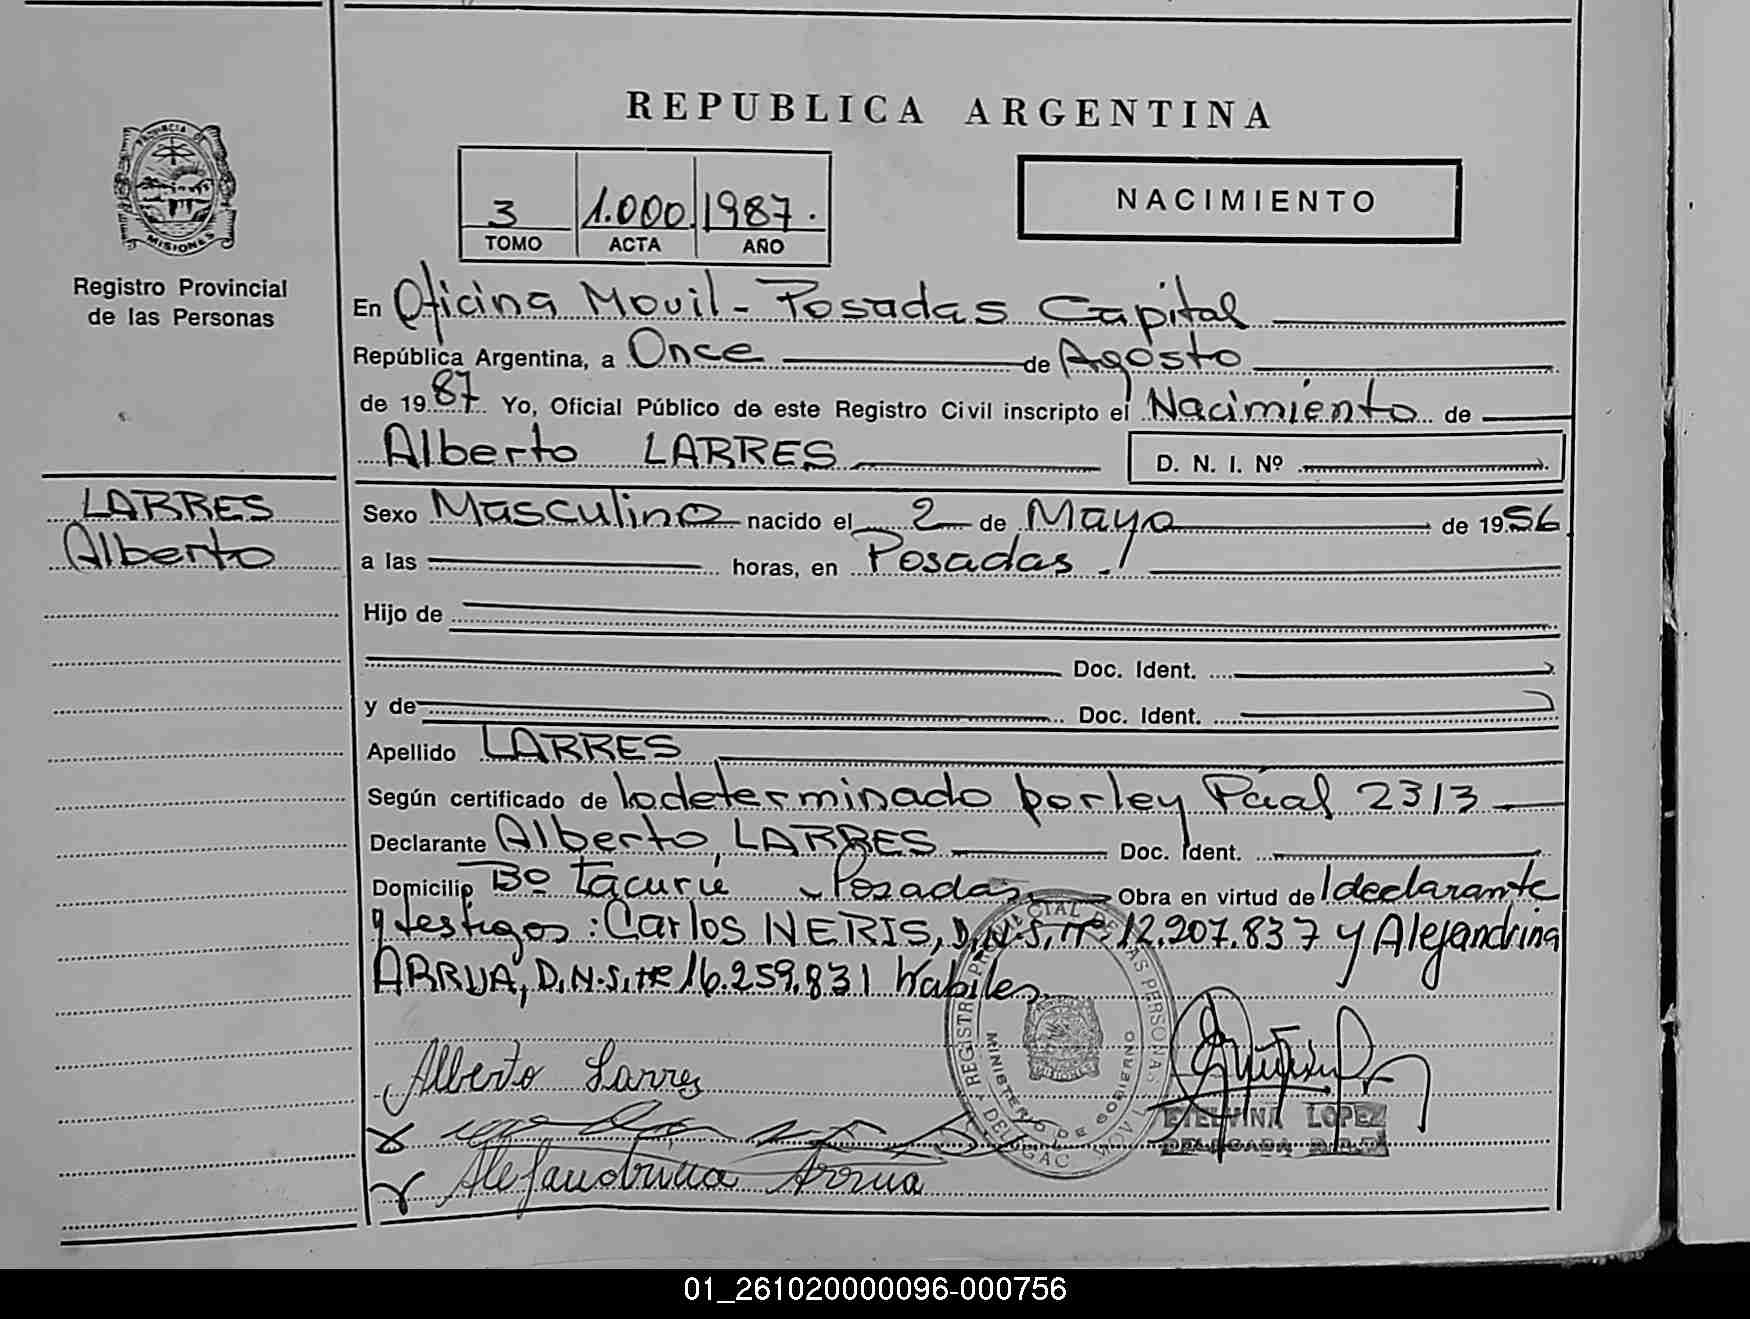 REPUBLICA ARGENTINA
PROVINCIA D
MISIONES
Registro Provincial
de las Personas
3 1.000 1987.
TOMO ACTA AÑO
NACIMIENTO
En Oficina Movil - Posadas Capital
República Argentina, a Once de Agosto
de 1987 Yo, Oficial Público de este Registro Civil inscripto el Nacimiento de
Alberto LARRES D. N. I. Nº
LARRES
Alberto
Sexo Masculino nacido el 2 de Mayo de 1956
a las horas, en Posadas.
Hijo de
Doc. Ident.
y de Doc. Ident.
Apellido LARRES
Según certificado de lo determinado por ley Pcial 2313
Declarante Alberto, LARRES Doc. Ident.
Domicilio Bº Tacurú - Posadas Obra en virtud de l declarante
y testigos: Carlos NERIS, 12.207.837 y Alejandrina
ARRUA, 16.259.831 habiles
REGISTRO PROVINCIAL DE LAS PERSONAS
MINISTERIO DE GOBIERNO
Alberto Larres
Alejandrina Arrua
ETELVINA LOPEZ
DELEGADA
01_261020000096-000756